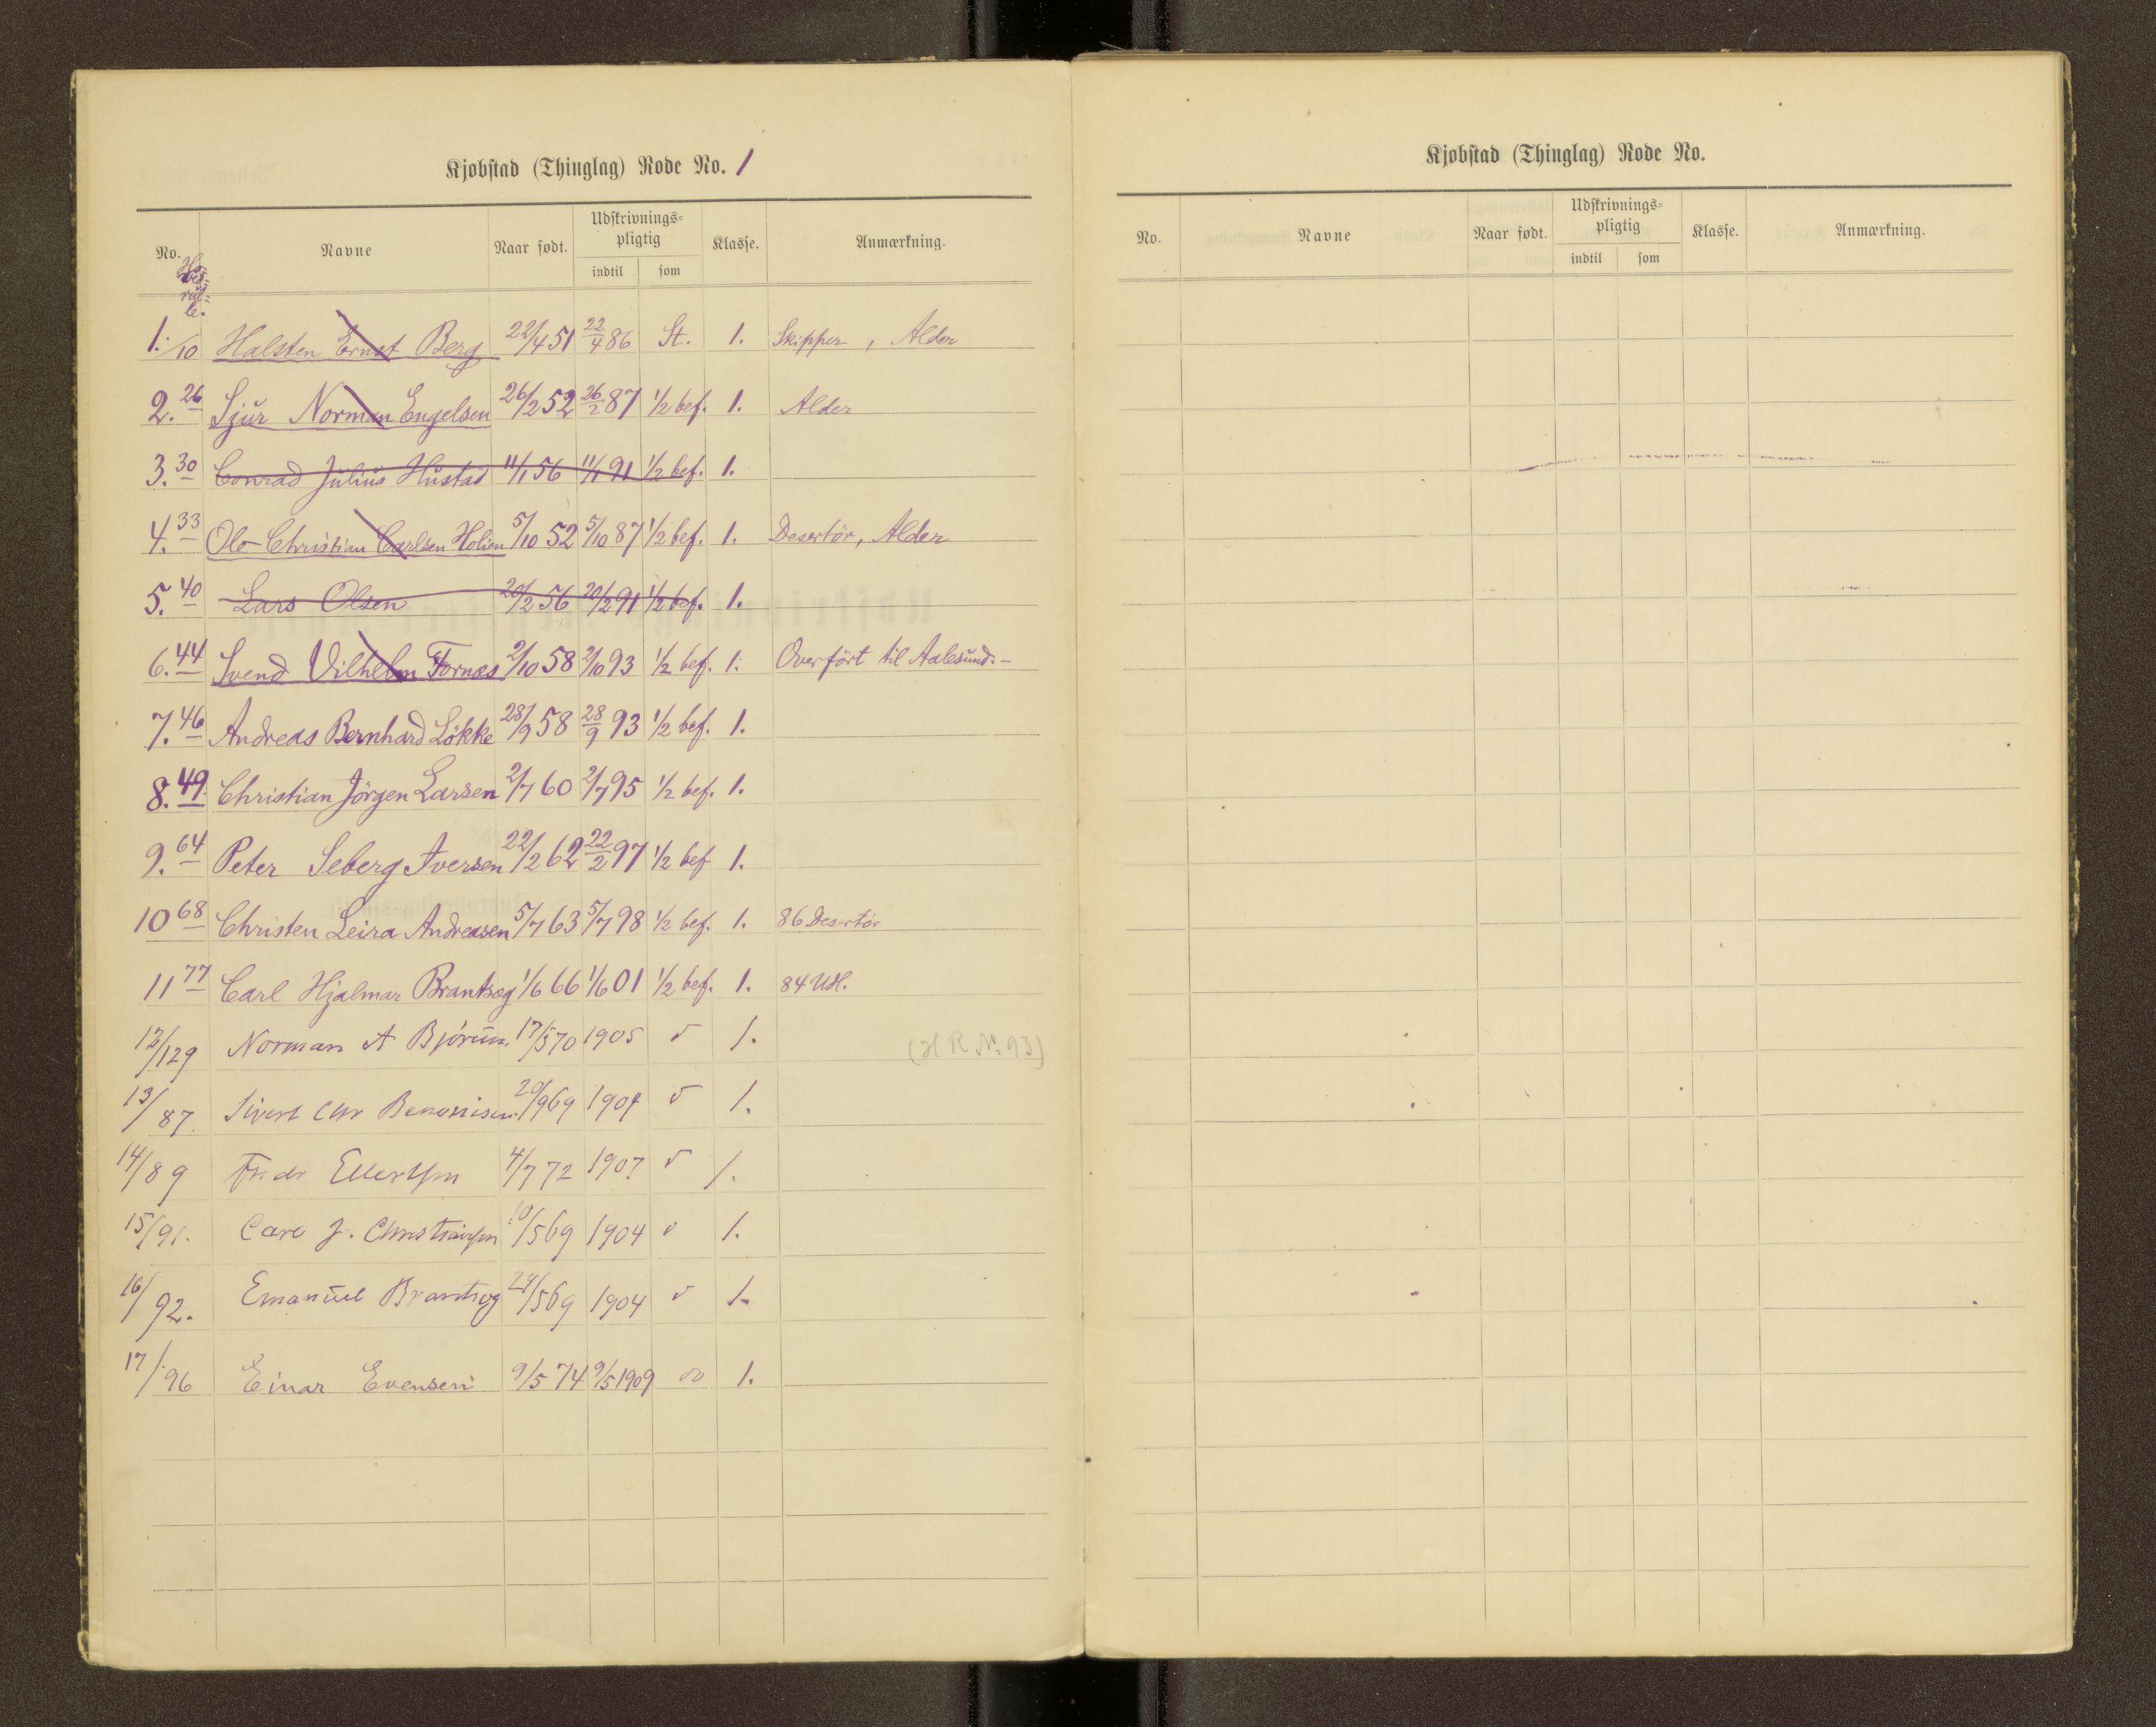 Kjøbstad (Thinglag) Rode No. 1
No. Navne Naar født. Udskrivnings-pligtig indtil som Klasse. Anmærkning.
1./10 Halsten Ernst Berg 22/4 51 22/4 86 St. 1. Skipper, Alder
2. 26 Sjur Norman Engelsen 26/2 52 26/2 87 1/2 bef. 1. Alder
3. 30 Conrad Julius Hustad 11/1 56 11/1 91 1/2 bef. 1.
4. 33 Ole Christian Carlsen Holien 5/10 52 5/10 87 1/2 bef. 1. Desertör, Alder
5. 40 Lars Olsen 20/2 56 20/2 91 1/2 bef. 1.
6. 44 Svend Vilhelm Fornæs 2/10 58 2/10 93 1/2 bef. 1. Overfört til Aalesund.-
7. 46 Andreas Bernhard Lökke 28/9 58 28/9 93 1/2 bef. 1.
8. 49. Christian Jörgen Larsen 2/7 60 2/7 95 1/2 bef. 1.
9. 64 Peter Seberg Iversen 22/2 62 22/2 97 1/2 bef 1.
10 68 Christen Leira Andreasen 5/7 63 5/7 98 1/2 bef. 1. 86 Desertör
11 77 Carl Hjalmar Brantsæg 1/6 66 1/6 01 1/2 bef. 1. 84 Udl.
12/129 Norman A Bjórum 17/5 70 1905 1. (H R No. 93)
13/87. Sivert Chr Benonisen 20/9 69 1904 1.
14/89 Fredr Ellertsen 4/7 72 1907 1.
15/91. Carl J. Christiansen 10/5 69 1904 1.
16/92. Emanuel Brantsæg 24/5 69 1904 1.
17/96 Einar Evensen 9/5 74 9/5 1909 1.
Kjøbstad (Thinglag) Rode No.
No. Navne Naar født. Udskrivnings-pligtig indtil som Klasse. Anmærkning.